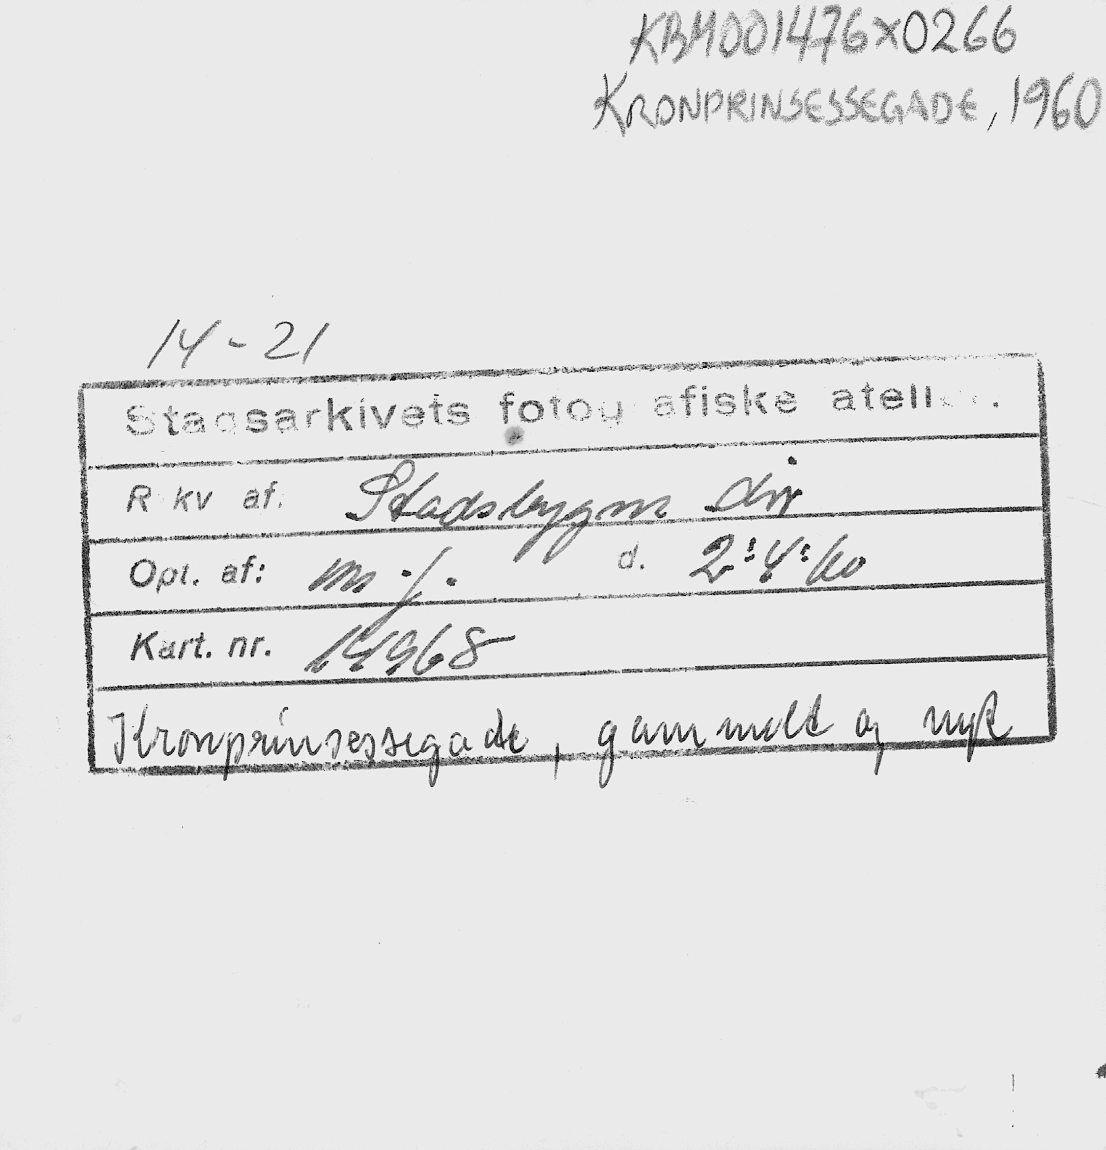 KBM001476x0266
KRONPRINSESSEGADE, 1960
14-21
Stadsarkivets fotografiske atelier.
Rekv af: Stadsbygm dir
Opt. af: m.j. d. 2:4:60
Kart. nr. 14968
Kronprinsessegade, gammelt og nyt